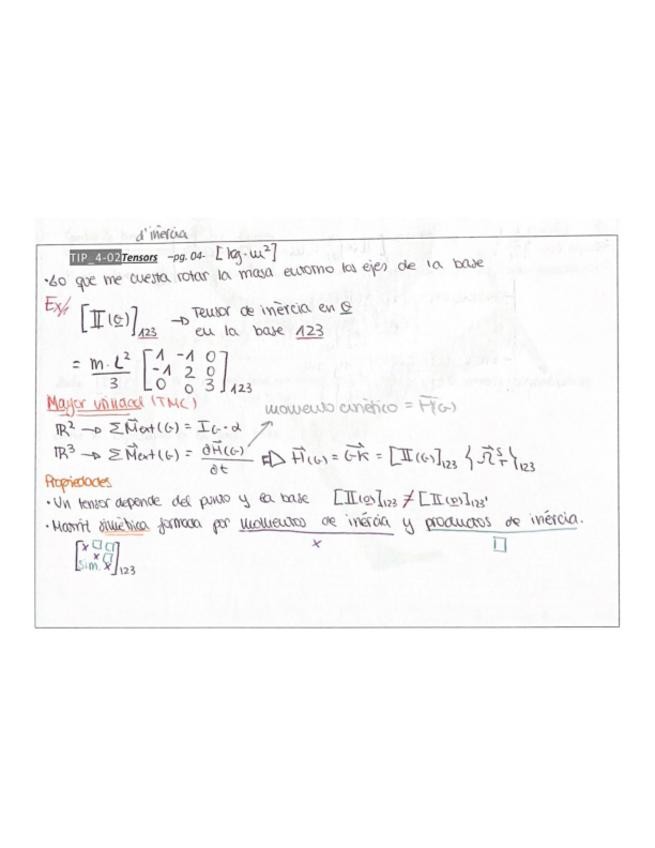 d'inèrcia
TIP_4-02 Tensors -pg. 04- [kg·m²]
·Lo que me cuesta rotar la masa entorno los ejes de la base
Ex/. [II(Q)]₁₂₃ → Tensor de inèrcia en Q
en la base 123
= m·L²/3 [1 -1 0; -1 2 0; 0 0 3]₁₂₃
Mayor utilidad (TMC)
momento cinético = H̄(G)
IR² → ΣM̄ext(G) = I_G·α
IR³ → ΣM̄ext(G) = ∂H̄(G)/∂t ⇒ H̄(G) = G̅K̅ = [II(G)]₁₂₃ {Ω̄ˢ_T}₁₂₃
Propiedades
· Un tensor depende del punto y la base [II(Q)]₁₂₃ ≠ [II(Q)]₁₂₃'
· Matriz simétrica formada por momentos de inércia y productos de inércia.
x □
[x □ □; x □; sim. x]₁₂₃